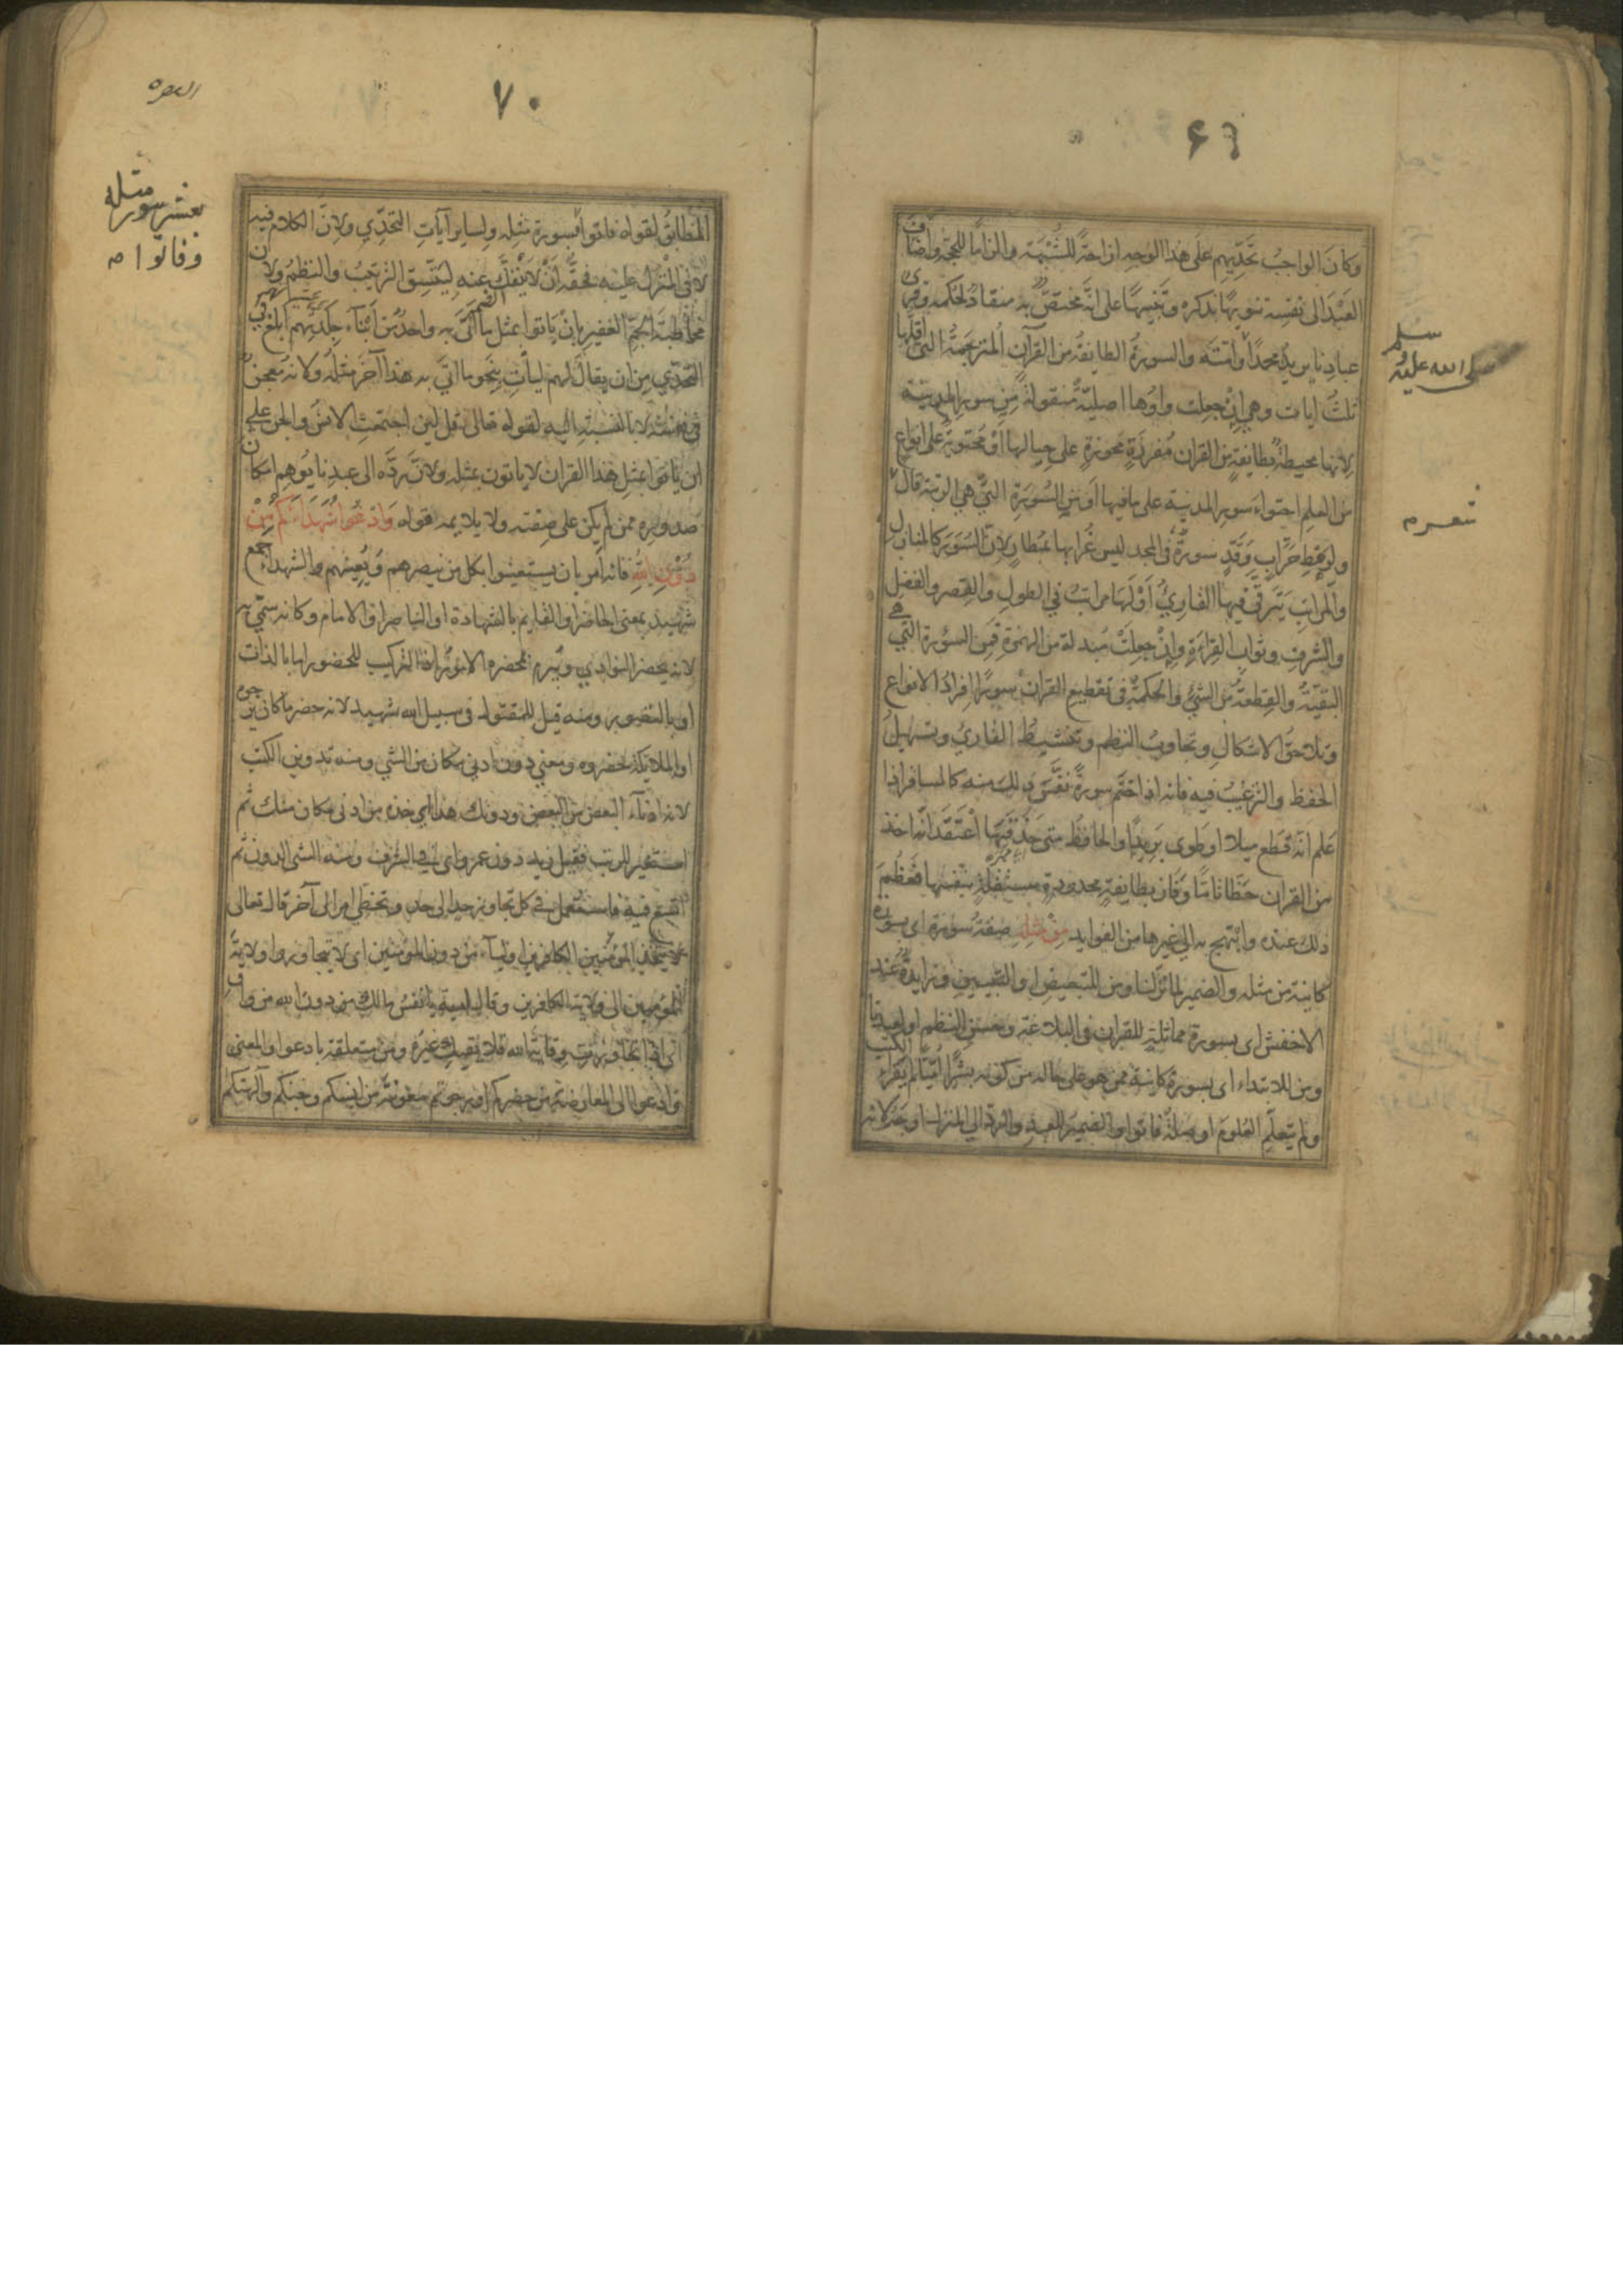 ٦٩
وكان الواجب تحديهم على هذا الوجه ازاحة للشبهة والزاما للحجة واضاف
العبد الى نفسه تنويها بذكره وتنبيها على انه مختص به منقاد لحكمه وقرئ
عبادنا يريد محمدا وامته والسورة الطايفة من القرآن المترجمة التي اقلها
ثلث ايات وهي ان جعلت واوها اصلية منقولة من سور المدينة
لانها محيطة بطايفة من القران مفرزة محوزة على حيالها او محتوية على انواع
من العلم احتواء سور المدينة على ما فيها او من السورة التي هي الرتبة قال
ولرهط حراب وقد سورة في المجد ليس غرابها بمطار لان السور كالمنازل
والمراتب يترقى فيها القاري او لها مراتب في الطول والقصر والفضل
والشرف وثواب القراءة وان جعلت مبدلة من الهمزة فمن السؤرة التي هي
البقية والقطعة من الشئ والحكمة في تقطيع القران سورا افراد الانواع
وتلاحق الاشكال وتجاوب النظم وتنشيط القارئ وتسهيل
الحفظ والترغيب فيه فانه اذا ختم سورة نفس ذلك منه كالمسافر اذا
علم انه قطع ميلا او طوى بريدا والحافظ متى حذقها اعتقد انه اخذ
من القران حظا تاما وفاز بطايفة محدودة مستقلة بنفسها فعظم
ذلك عنده وابتهج به الى غيرها من الفوايد من مثله صفة سورة اى بسورة
كاينة من مثله والضمير لما نزلنا ومن للتبعيض او للتبيين وزايدة عند
الاخفش اى بسورة مماثلة للقران في البلاغة وحسن النظم او لعبدنا
ومن للابتداء اى بسورة كاينة ممن هو على حاله من كونه بشرا اميا لم يقراء الكتب
ولم يتعلم العلوم او صلة فاتوا والضمير للعبد والرد الى المنزل اوجه لانه
صلى الله عليه
وسلم
٧٠
البقره
المطابق لقوله فاتوا بسورة مثله ولساير آيات التحدي ولان الكلام فيه
لا في المنزل عليه فحقه ان لا ينفك عنه ليتسق الترتيب والنظم ولان
مخاطبة الجم الغفير بان ياتوا بمثل ما اتى به واحد من ابناء جلدتهم ابلغ في
التحدي من ان يقال لهم ليأت بنحو ما اتى به هذا آخر مثله ولانه معجز
في نفسه لا بالنسبة اليه لقوله تعالى قل لئن اجتمعت الانس والجن على
ان ياتوا بمثل هذا القران لا ياتون بمثله ولان رده الى عبدنا يوهم امكان
صدوره ممن لم يكن على صفته ولا يلايمه قوله وادعوا شهداءكم من
دون الله فانه امر بان يستعينوا بكل من ينصرهم ويعينهم والشهداء جمع
شهيد بمعنى الحاضر او القايم بالشهادة او الناصر او الامام وكانه سمي به
لانه يحضر النوادي ويبرم بمحضره الامور اذ التركيب للحضور اما بالذات
او بالتصور ومنه قيل للمقتول في سبيل الله شهيد لانه حضر ما كان يرجوه
او الملايكة حضروه ومعنى دون ادنى مكان من الشي ومنه تدوين الكتب
لانه ادناء البعض من البعض ودونك هذا اى خذه من ادنى مكان منك ثم
استعير للرتب فقيل زيد دون عمرو اى في الشرف ومنه الشئ الدون ثم
اتسع فيه فاستعمل في كل تجاوز حد الى حد وتخطي امر الى آخر قال تعالى
لا يتخذ المؤمنون الكافرين اولياء من دون المؤمنين اى لا يتجاوزوا ولاية
المؤمنين الى ولاية الكافرين وقال امية يا نفس مالك من دون الله من واق
اى اذا تجاوزت وقاية الله فلا يقيك غيره ومن متعلقة بادعوا والمعنى
وادعوا الى المعارضة من حضركم او رجوتم معونته من انسكم وجنكم وآلهتكم
بعشر سور مثله
وفاتوا